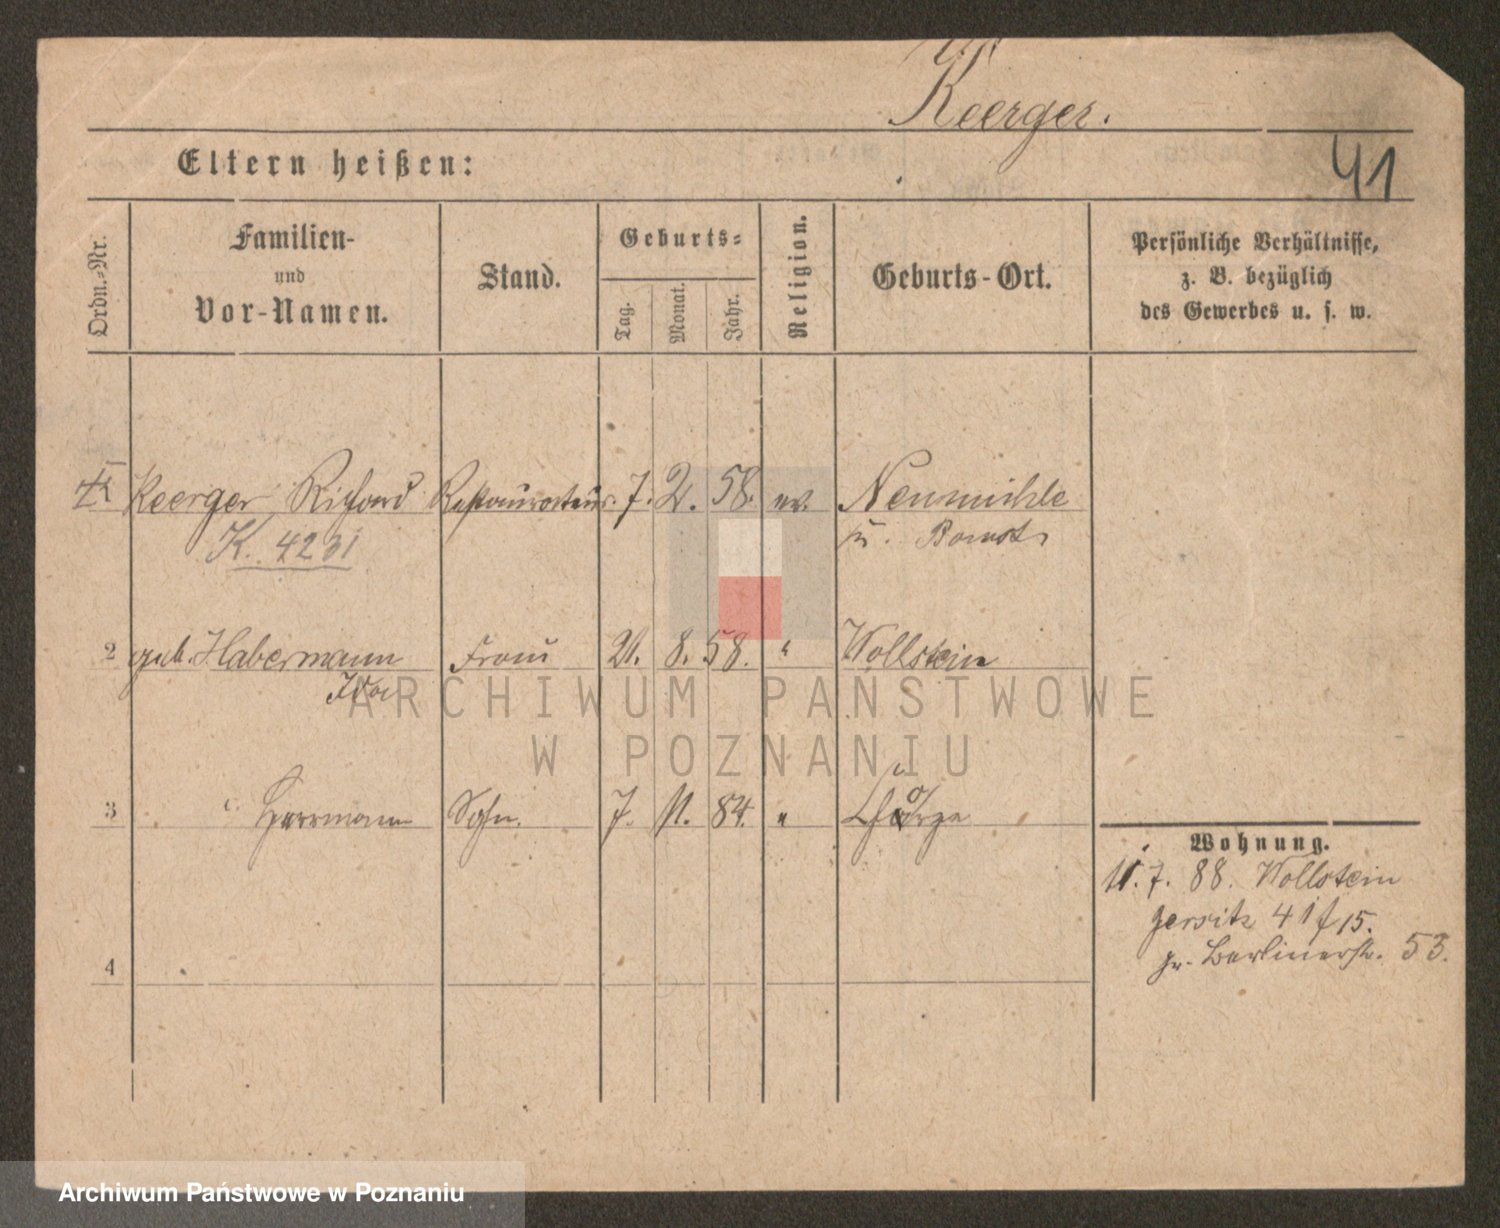 Keerger.
Eltern heißen:
41
Ordn.-Nr.
Familien-
und
Vor-Namen.
Stand.
Geburts-
Tag.
Monat.
Jahr.
Religion.
Geburts-Ort.
Persönliche Verhältnisse,
z. B. bezüglich
des Gewerbes u. s. w.
Keerger Richard Restaurateur. 7. 2. 58. ev. Neumühle
K. 4231
2 geb. Habermann Frau 21. 8. 58. " Wollstein
Ida
3 Herrmann Sohn. 7. 11. 84. "
Wohnung.
11. 7. 88. Wollstein
Jersitz 41 f 15.
gr. Berlinerstr. 53.
4
ARCHIWUM PAŃSTWOWE
W POZNANIU
Archiwum Państwowe w Poznaniu